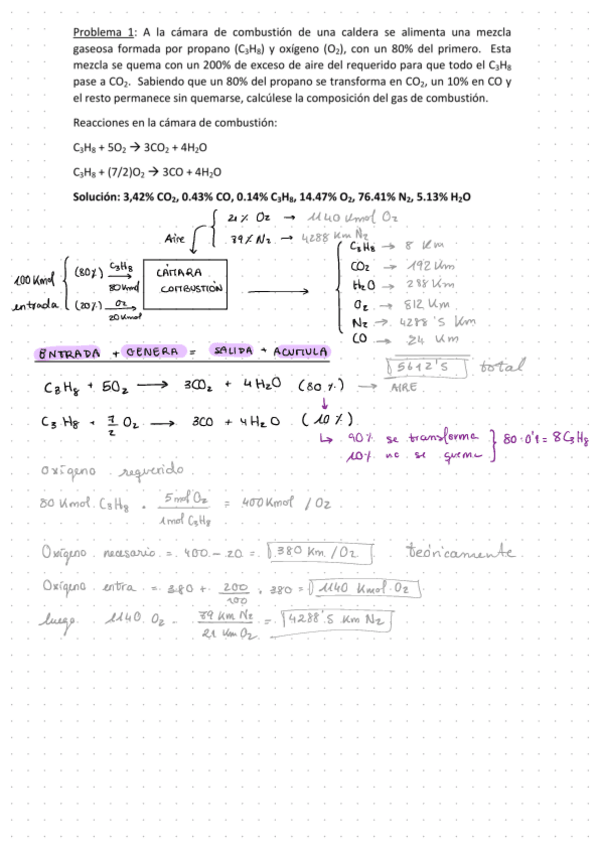 Problema 1: A la cámara de combustión de una caldera se alimenta una mezcla
gaseosa formada por propano (C₃H₈) y oxígeno (O₂), con un 80% del primero. Esta
mezcla se quema con un 200% de exceso de aire del requerido para que todo el C₃H₈
pase a CO₂. Sabiendo que un 80% del propano se transforma en CO₂, un 10% en CO y
el resto permanece sin quemarse, calcúlese la composición del gas de combustión.
Reacciones en la cámara de combustión:
C₃H₈ + 5O₂ → 3CO₂ + 4H₂O
C₃H₈ + (7/2)O₂ → 3CO + 4H₂O
Solución: 3,42% CO₂, 0.43% CO, 0.14% C₃H₈, 14.47% O₂, 76.41% N₂, 5.13% H₂O
Aire
21% O₂ → 1140 Kmol O₂
79% N₂ → 4288 Km N₂
100 Kmol
entrada
(80%) C₃H₈
80 Kmol
(20%) O₂
20 Kmol
CÁMARA
COMBUSTIÓN
C₃H₈ → 8 Km
CO₂ → 192 Km
H₂O → 288 Km
O₂ → 812 Km
N₂ → 4288'5 Km
CO → 24 Km
5612'5 total
ENTRADA + GENERA = SALIDA + ACUMULA
C₃H₈ + 5O₂ → 3CO₂ + 4H₂O (80%) → AIRE
C₃H₈ + 7/2 O₂ → 3CO + 4H₂O (10%)
↳ 90% se transforma
10% no se quema
} 80·0'1 = 8 C₃H₈
Oxígeno requerido
80 Kmol C₃H₈ · 5 mol O₂ / 1 mol C₃H₈ = 400 Kmol / O₂
Oxígeno necesario = 400 - 20 = 380 Km / O₂ teóricamente
Oxígeno entra = 380 + 200/100 · 380 = 1140 Kmol O₂
luego 1140 O₂ · 79 Km N₂ / 21 Km O₂ = 4288'5 Km N₂